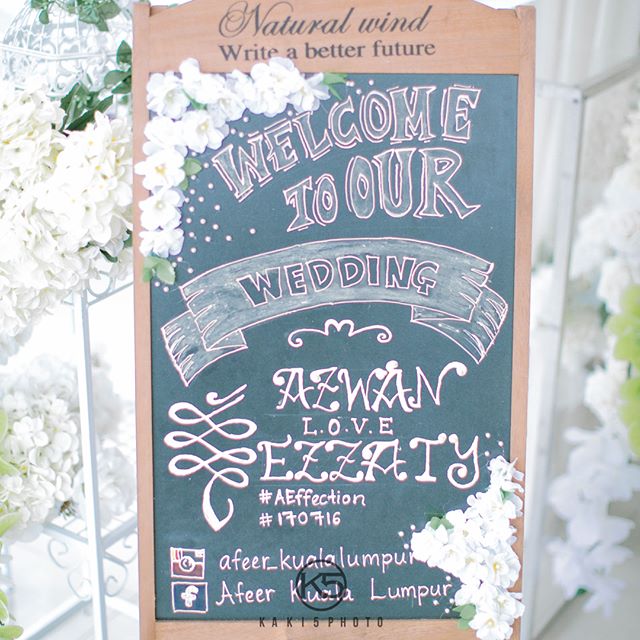 Natural wind
Write a better future
WELCOME
TO OUR
WEDDING
AZWAN
L.O.V.E
EZZATY
#AEffection
#170716
afeer_kualalumpur
Afeer Kuala Lumpur
K5
KAKI5PHOTO